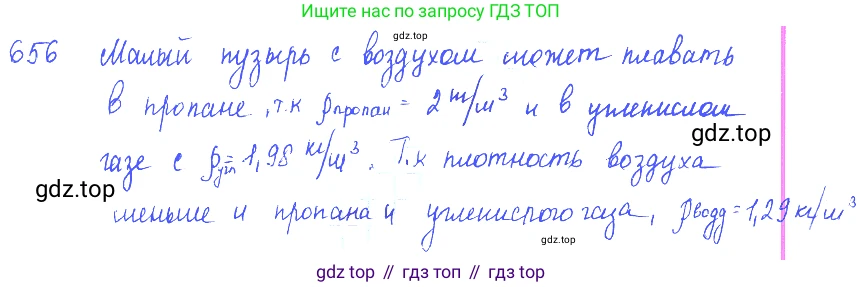 Ищите нас по запросу ГДЗ ТОП
gdz.top
656 Малый пузырь с воздухом может плавать
в пропане, т.к ρпропан = 2 кг/м³ и в углекислом
gdz.top
газе с ρуг = 1,98 кг/м³. Т.к плотность воздуха
gdz.top
меньше и пропана и углекислого газа, ρвозд = 1,29 кг/м³
gdz.top
gdz top // гдз топ // gdz top